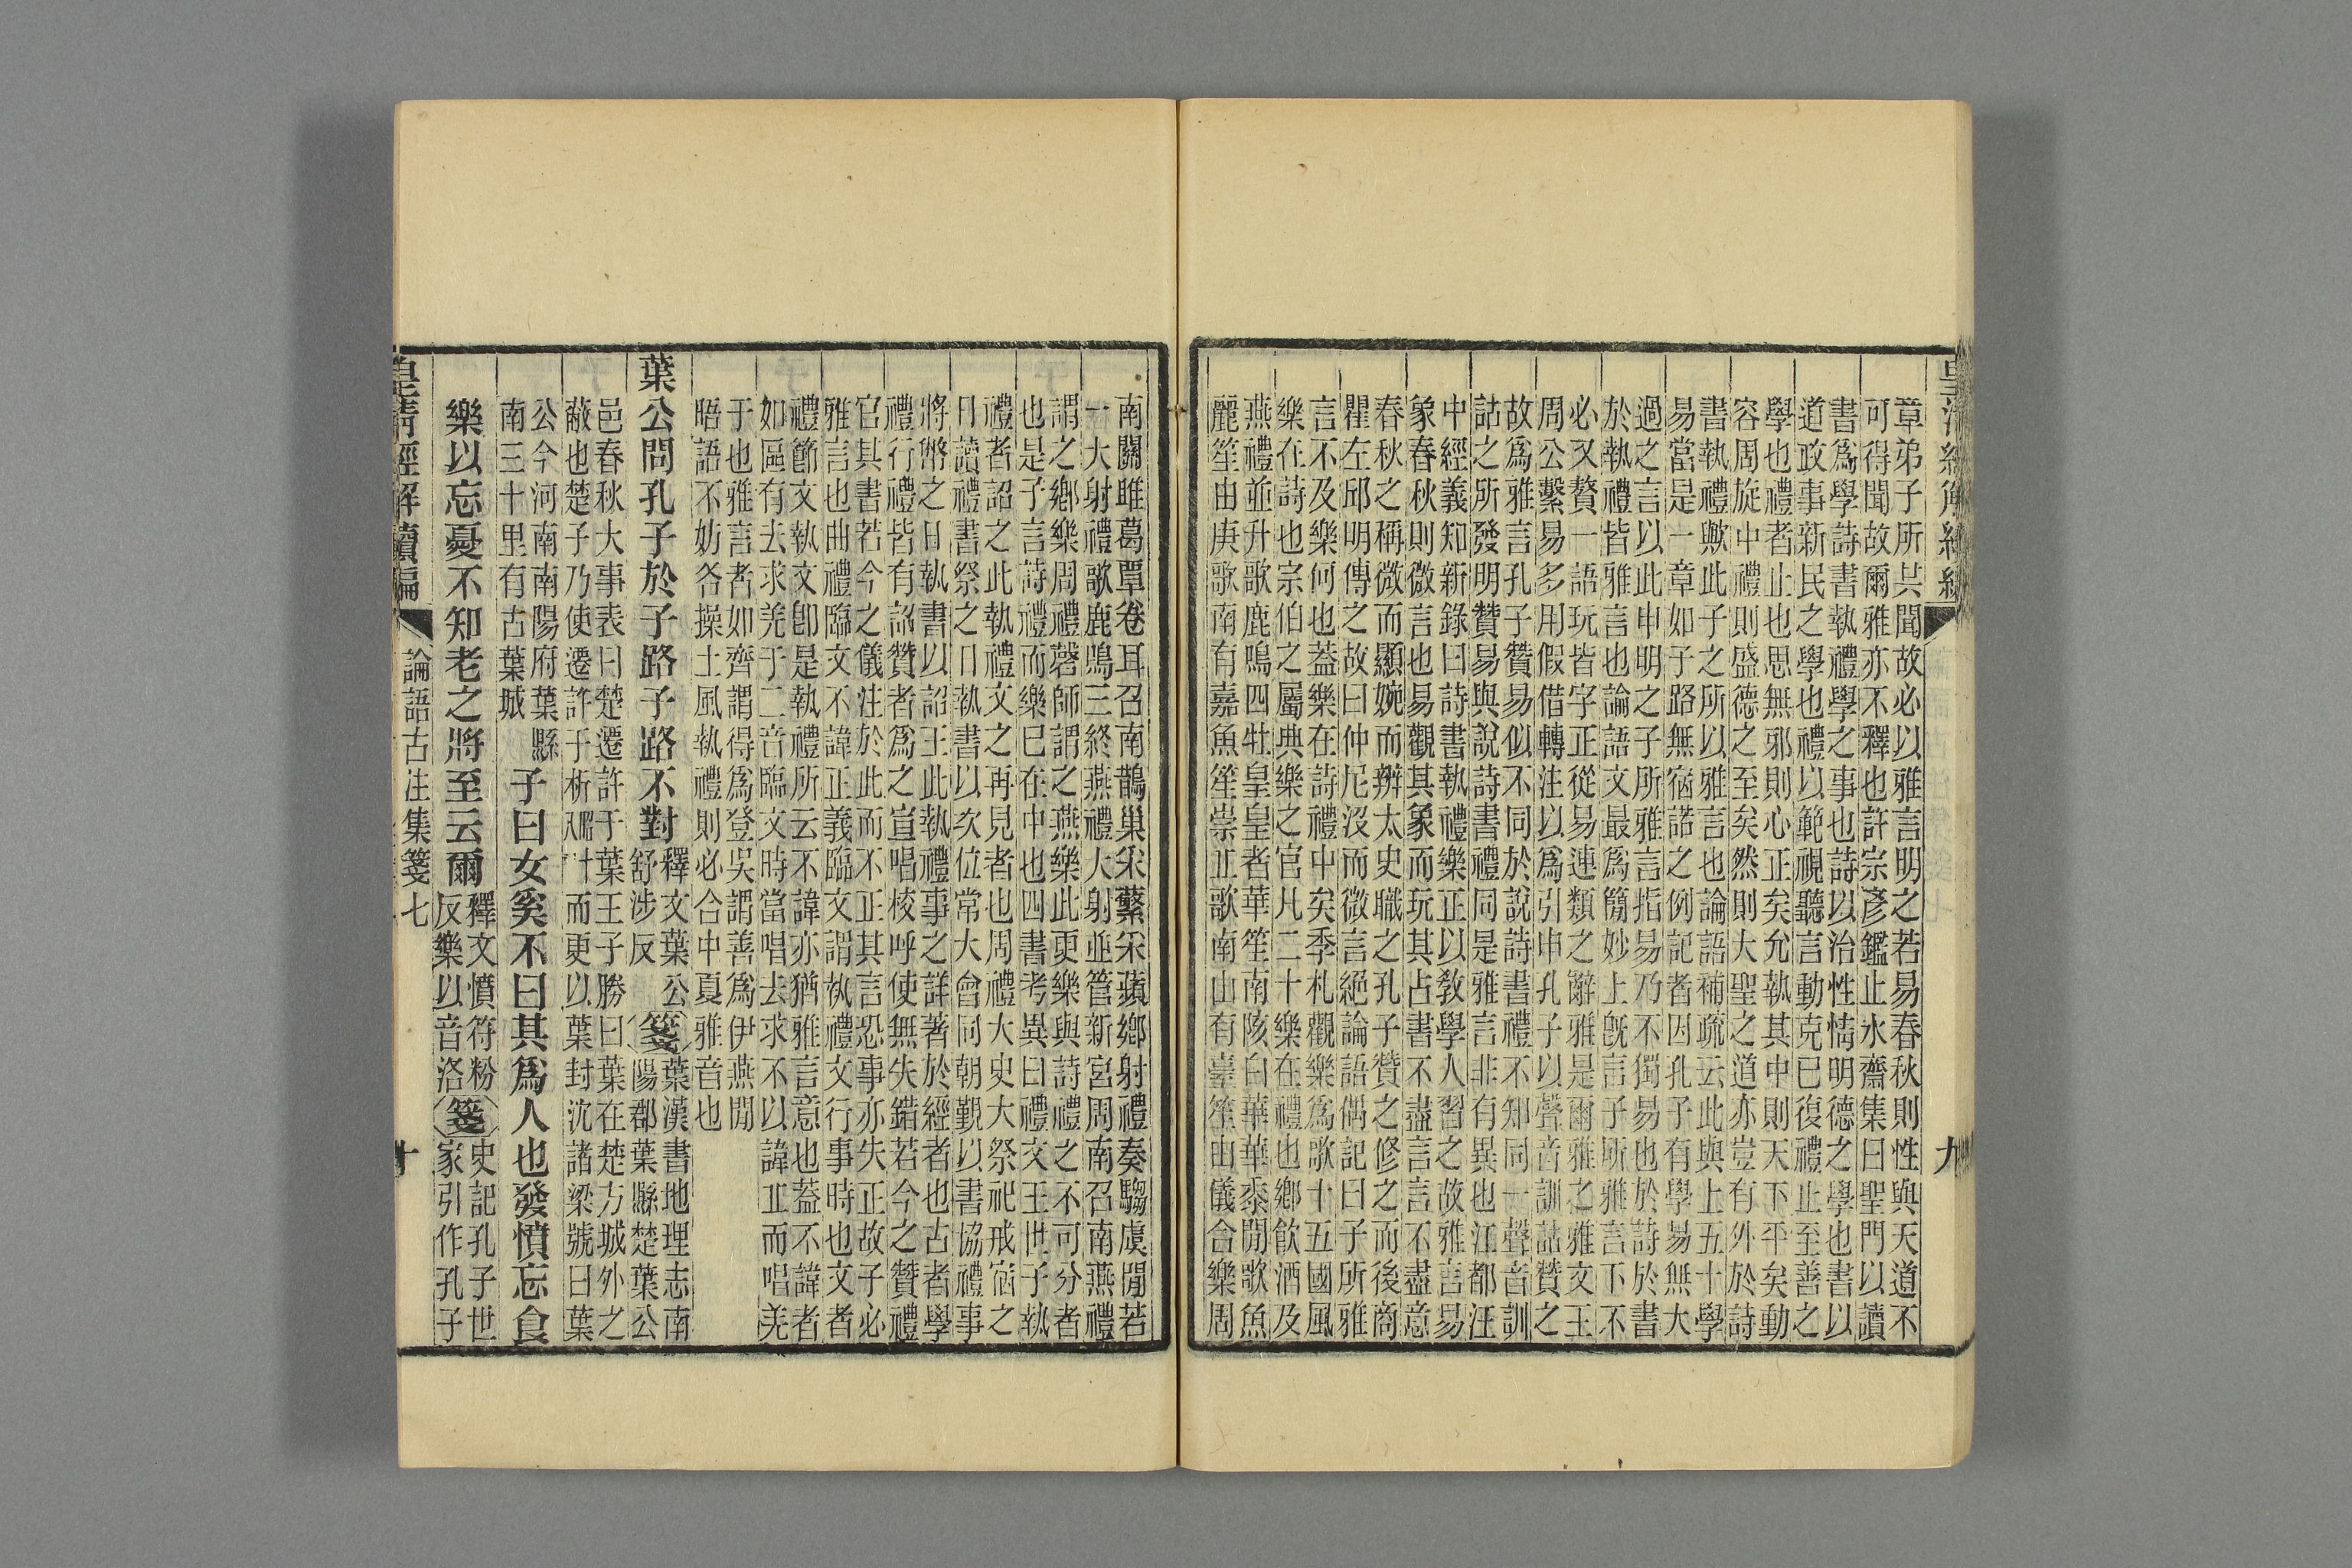 章弟子所共聞故必以雅言明之若易春秋則性與天道不
可得聞故爾雅亦不釋也許宗彥鑑止水齋集曰聖門以讀
書爲學詩書執禮學之事也詩以治性情明德之學也書以
道政事新民之學也禮以範視聽言動克已復禮止至善之
學也禮者止也思無邪則心正矣允執其中則天下平矣動
容周旋中禮則盛德之至矣然則大聖之道亦豈有外於詩
書執禮歟此子之所以雅言也論語補疏云此與上五十學
易當是一章如子路無宿諾之例記者因孔子有學易無大
過之言以此申明之子所雅言指易乃不獨易也於詩於書
於執禮皆雅言也論語文最爲簡妙上旣言子所雅言下不
必又贅一語玩皆字正從易連類之辭雅是爾雅之雅文王
周公繫易多用假借轉注以爲引申孔子以聲音訓詁贊之
故爲雅言孔子贊易似不同於說詩書禮不知同一聲音訓
詁之所發明贊易與說詩書禮同是雅言非有異也江都汪
中經義知新錄曰詩書執禮樂正以敎學人習之故雅言易
象春秋則微言也易觀其象而玩其占書不盡言言不盡意
春秋之稱微而顯婉而辨太史職之孔子贊之修之而後商
瞿左邱明傳之故曰仲尼沒而微言絕論語偶記曰子所雅
言不及樂何也葢樂在詩禮中矣季札觀樂爲歌十五國風
樂在詩也宗伯之屬典樂之官凡二十樂在禮也鄉飮酒及
燕禮並升歌鹿鳴四牡皇皇者華笙南陔白華華黍閒歌魚
麗笙由庚歌南有嘉魚笙崇丘歌南山有臺笙由儀合樂周
九
南關雎葛覃卷耳召南鵲巢采蘩采蘋鄉射禮奏騶虞閒若
一大射禮歌鹿鳴三終燕禮大射並管新宮周南召南燕禮
謂之鄉樂周禮磬師謂之燕樂此更樂與詩禮之不可分者
也是子言詩禮而樂已在中也四書考異曰禮文王世子執
禮者詔之此執禮文之再見者也周禮大史大祭祀戒宿之
日讀禮書祭之日執書以次位常大會同朝覲以書協禮事
將幣之日執書以詔王此執禮事之詳著於經者也古者學
禮行禮皆有詔贊者爲之宣唱校呼使無失錯若今之贊禮
官其書若今之儀注於此而不正其言恐事亦失正故子必
雅言也曲禮臨文不諱正義臨文謂執禮文行事時也文者
禮節文執文卽是執禮所云不諱亦猶雅言意也葢不諱者
如區有去求羌于二音臨文時當唱去求不以諱丘而唱羌
于也雅言者如齊謂得爲登吳謂善爲伊燕閒
晤語不妨各操土風執禮則必合中夏雅音也
葉公問孔子於子路子路不對
釋文葉公
舒涉反
箋
葉漢書地理志南
陽郡葉縣楚葉公
邑春秋大事表曰楚遷許于葉王子勝曰葉在楚方城外之
蔽也楚子乃使遷許于析而更以葉封沈諸梁號曰葉
公今河南南陽府葉縣
南三十里有古葉城
子曰女奚不曰其爲人也發憤忘食
樂以忘憂不知老之將至云爾
釋文憤符粉
反樂以音洛
箋
史記孔子世
家引作孔子
皇淸經解續編
論語古注集箋七
十